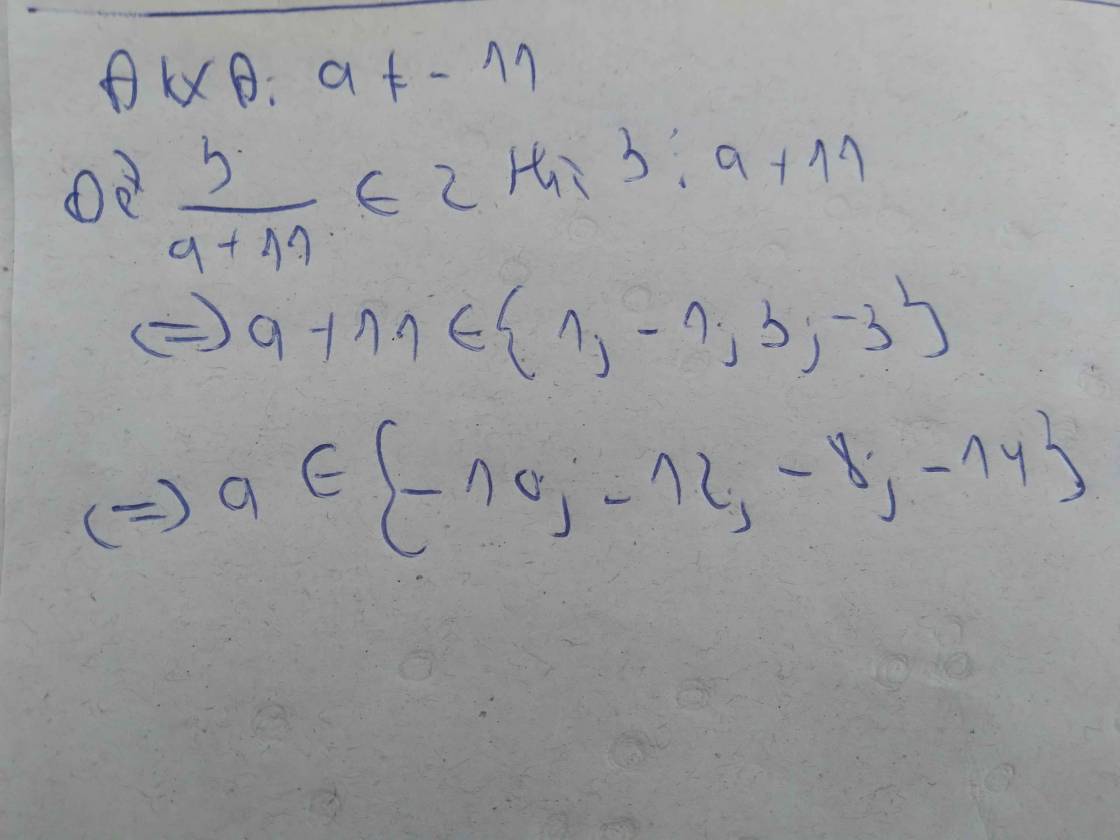 ĐKXĐ: a ≠ - 11
Để 3/(a+11) ∈ Z thì 3 ⋮ a+11
(=) a+11 ∈ { 1; -1; 3; -3 }
(=) a ∈ { -10; -12; -8; -14 }